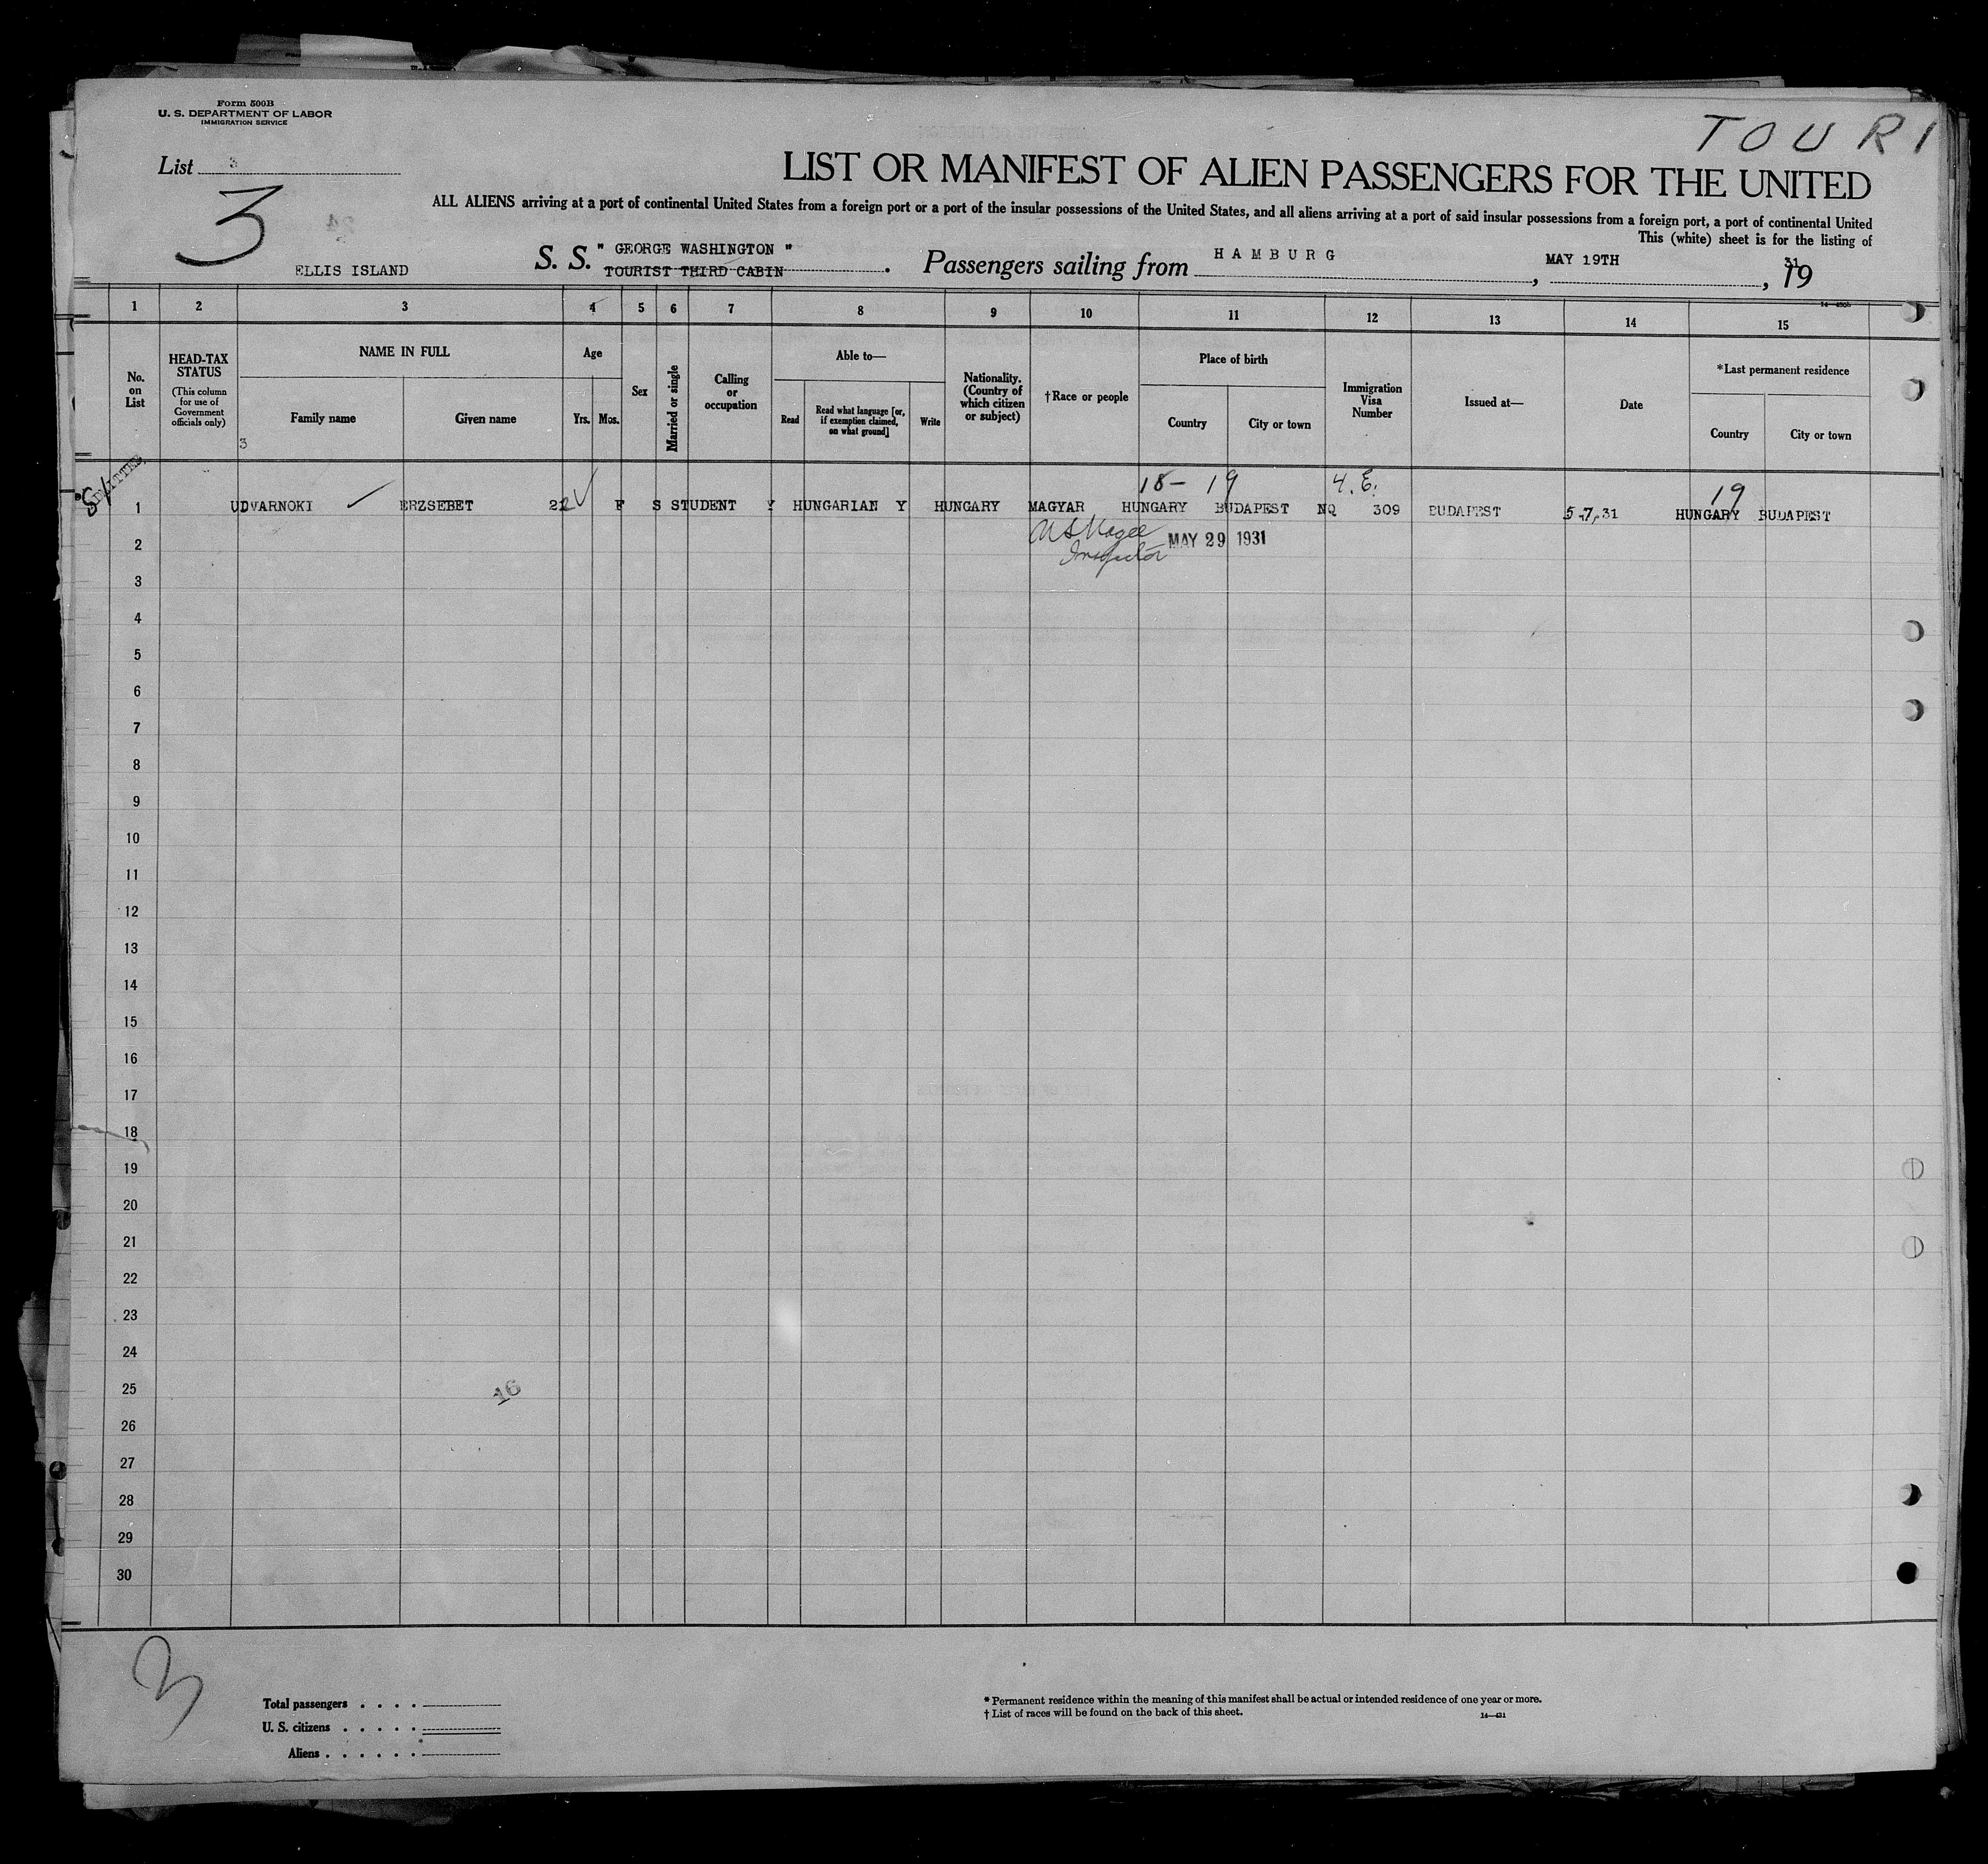 Form 500B
U. S. DEPARTMENT OF LABOR
IMMIGRATION SERVICE
TOURI
List 3
3
LIST OR MANIFEST OF ALIEN PASSENGERS FOR THE UNITED
ALL ALIENS arriving at a port of continental United States from a foreign port or a port of the insular possessions of the United States, and all aliens arriving at a port of said insular possessions from a foreign port, a port of continental United
This (white) sheet is for the listing of
ELLIS ISLAND
S. S. " GEORGE WASHINGTON "
TOURIST THIRD CABIN
Passengers sailing from HAMBURG, MAY 19TH, 19 31
14—430b
1 2 3 4 5 6 7 8 9 10 11 12 13 14 15
No. on List
HEAD-TAX STATUS
(This column for use of Government officials only)
NAME IN FULL
Family name
Given name
3
Age
Yrs. Mos.
Sex
Married or single
Calling or occupation
Able to—
Read
Read what language [or, if exemption claimed, on what ground]
Write
Nationality. (Country of which citizen or subject)
†Race or people
Place of birth
Country
City or town
Immigration Visa Number
Issued at—
Date
*Last permanent residence
Country
City or town
ADMITTED
SI
18— 19 4.E. 19
1 UDVARNOKI ERZSEBET 22 F S STUDENT Y HUNGARIAN Y HUNGARY MAGYAR HUNGARY BUDAPEST NQ 309 BUDAPEST 5-7-31 HUNGARY BUDAPEST
2 Inspector MAY 29 1931
3
4
5
6
7
8
9
10
11
12
13
14
15
16
17
18
19
20
21
22
23
24
25
16
26
27
28
29
30
3
Total passengers . . . .
U. S. citizens . . . . .
Aliens . . . . . .
* Permanent residence within the meaning of this manifest shall be actual or intended residence of one year or more.
† List of races will be found on the back of this sheet.
14—431